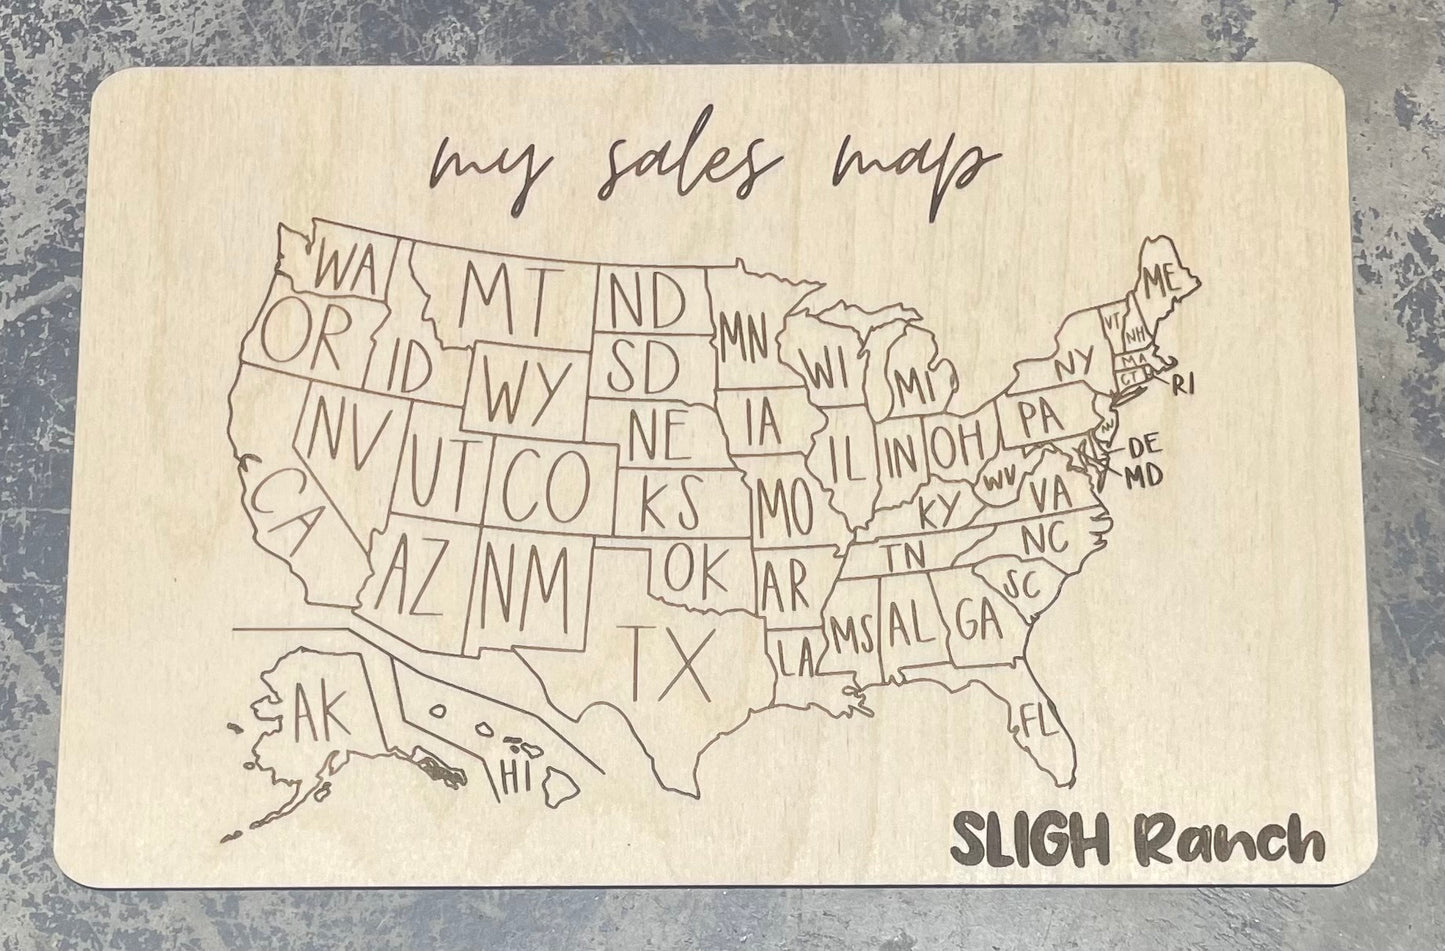 my sales map
WA
MT
ND
MN
ME
OR
ID
SD
WI
MI
VT
NH
NY
MA
CT
RI
WY
NV
UT
CO
NE
IA
IL
IN
OH
PA
NJ
DE
MD
WV
VA
CA
KS
MO
KY
AZ
NM
OK
AR
TN
NC
SC
TX
LA
MS
AL
GA
FL
AK
HI
SLIGH Ranch